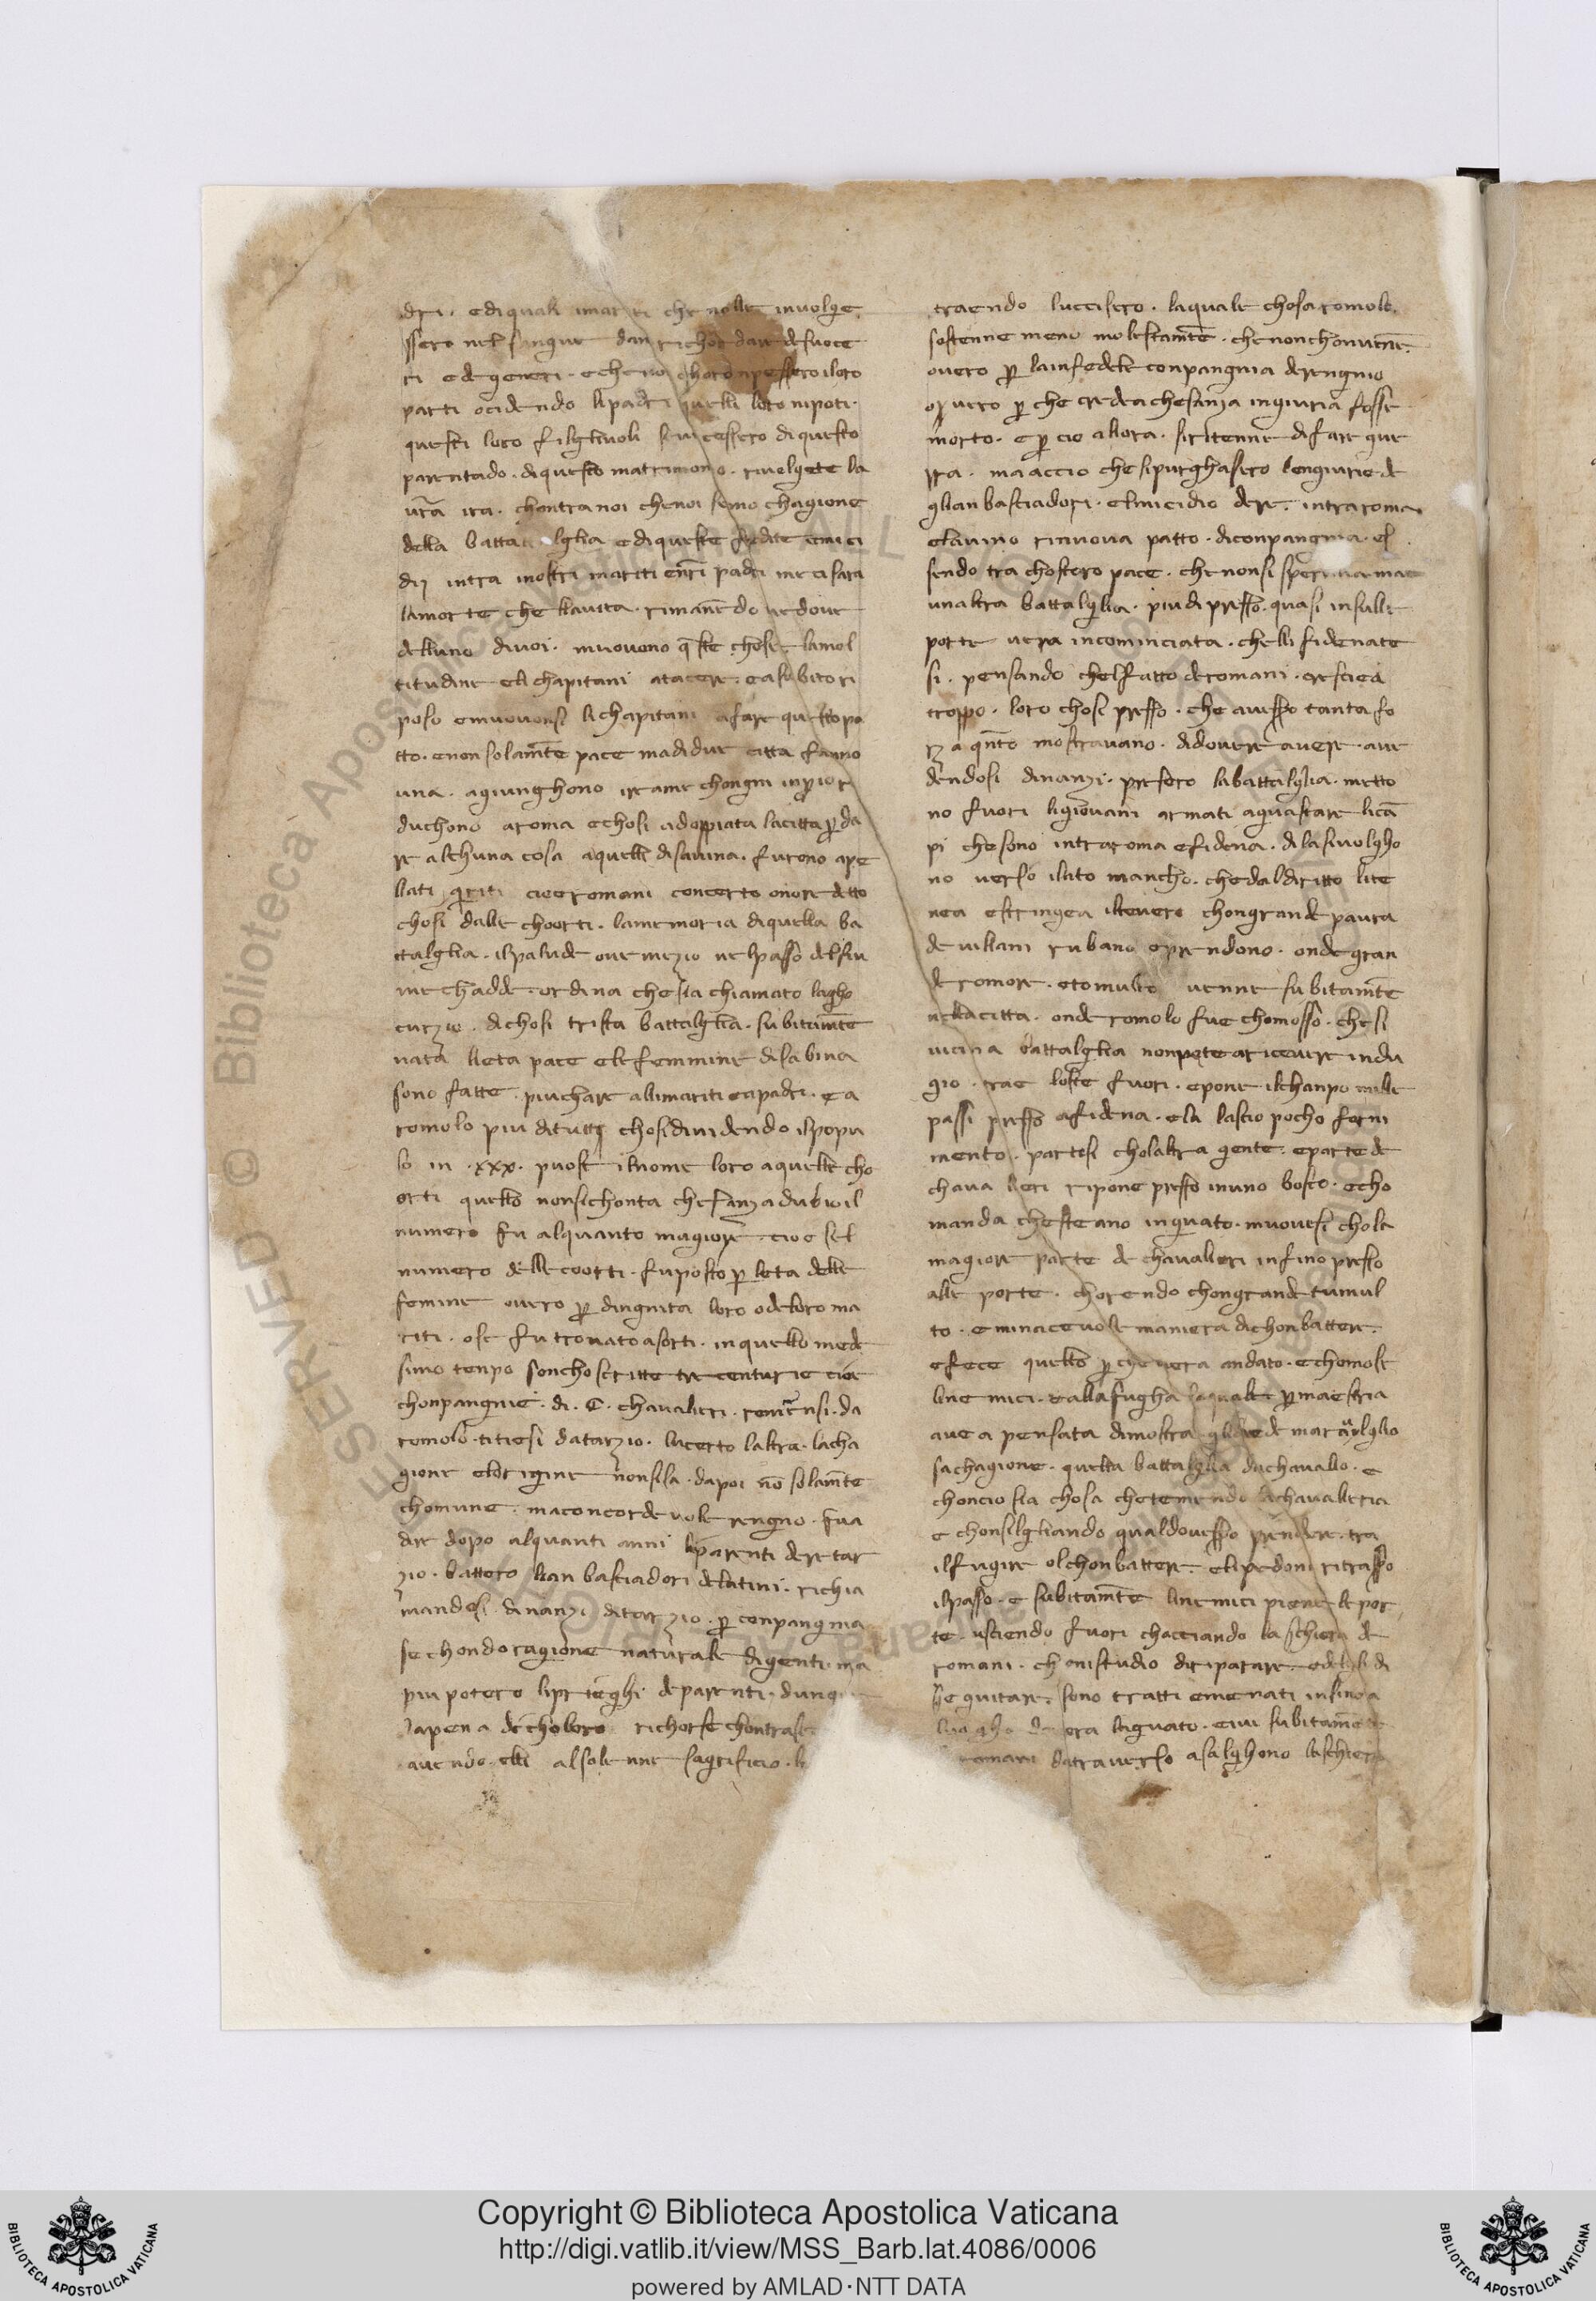 dri. ediquali mariti che nolle involge
ssero nel sangue dan richordare desuoce
ri edegeneri. echeno choronpessero iloro
parti ocidendo lipadri quelli loro nipoti.
questi loro filgliuoli successero diquesto
parentado. diquesto matrimonio. rivolgete la
vr̄a ira. chontra noi chenoi semo chagione
della battalglia ediqueste fedite emici
dij intra inostri mariti enr̄i padri meci sara
lamorte che llavita. rimanēdo vedove
delluno divoi. muoveno q̄ste chose. lamol
titudine elichapitani atacere. easubitori
poso emuovonsi lichapitani afare quessto pa
tto. enon solam̄te pace madidue citta fanno
una. agiunghono
duchono aroma echosi adoppiata lacitta p̄ da
re alchuna cosa aquelli disavina. furono ape
llati quriti cioeromani concerto onore detto
chosi dalle choorti. lamemoria diquella ba
ttalglia. ilpalude ove mezio nelpasso delfiu
me chadde. ordina che sia chiamato lagho
curzio. dichosi trista battalglia. subitam̄te
nata lieta pace elefemmine disabina
sono fatte piuchare allimariti eapadri. e a
romolo piu ditutti chosi dividendo ilpopu
lo in .xxx. puose ilnome loro aquelle cho
orti questo nonsichonta chesanza dubioil
numero fu alquanto magiore. cioe sel
numero delle coorti. fuposto p̄ leta delle
femine overo p̄ dingnita loro odeloro ma
riti. ose fu trovato asorti. in quello mede
simo tenpo sonchoscritte tre centurie cioe
chonpangnie. di. C. chavalieri. da
romolo. titiesi datazio. lucerto laltra. lacha
gione elorigine nonsisa. dapoi nō solam̄te
chomune. maconcordevole rengno. fua
dire dopo alquanti anni liparenti deretar
zio. battero lianbasciadori delatini. richia
mandosi. dinanzi ditarzio. p̄ conpangnia
sechondo ragione naturale digenti. ma
piu potero lipriegghi deparenti. dunque
lapena dicholoro richorse chontrase
avendo elli alsolenne sagrificio.
traendo luccisero. laquale chosa romolo.
sostenne meno molestam̄te. chenonchonviene.
overo p̄ lainfedele conpangnia derengnio
overo p̄ che credea chesanza ingiuria fosse
morto. e p̄ cio allora. siritenne difare gue
rra. maaccio chesipurghassero lengiurie de
glianbasciadori. elmicidio dere. intraroma
elavino rinnova patto. diconpangnia. es
sendo tra chostoro pace. chenonsi
unaltra battalglia. piudi presso. quasi insulle
porte vera incominciata. chelli fidenate
si. pensando chelfatto deromani. cresciea
troppo. loro chosi presso. che avesso tanta fo
rza qn̄to mostravano. didovere avere. ave
dendosi dinanzi. presero labattalglia. metto
no fuori ligiovani armati aguastare licā
pi chesono intraroma efidena. dila sivolgho
no verso ilato mancho. chedaldiritto lite
nea estringea iltevero chongrande paura
devillani rubano oprendono. onde gran
de romore. etomulto venne subitam̄te
nellacitta. onde romolo fue chomosso. chesi
vicina battalglia nonpote aricevere indu
gio. trae loste fuori. epone ilchanpo mille
passi presso afidena. ela lascio pocho forni
mento. partesi cholaltra gente. eparte de
chavalieri ripone presso inuno bosco. echo
manda chesteano inguato. muovesi chola
magiore parte de chavalieri infino presso
alle porte. chorendo chongrande tumul
to. eminacevole maniera dichonbattere.
efece quello p̄ chevera andato. echomose
linemici. eallafugha laquale p̄ maestria
avea pensata dimostra
sachagione. quella battalglia dachavallo. e
choncio sia chosa chetemendo lachavalleria
e chonsilgliando qualdovesso prendere. tra
ilfugire olchonbattere. elipedoni ritrasso
ilpasso. e subitam̄te linemici piene le por
te. usciendo fuori chacciando laschiera de
romani. chonistudio diriparare.
seguitare. sono tratti emenati insino a
era laguato. eivi subitam̄ente
romani datraverso asalghono laschiera
Copyright © Biblioteca Apostolica Vaticana
http://digi.vatlib.it/view/MSS_Barb.lat.4086/0006
powered by AMLAD·NTT DATA
BIBLIOTECA APOSTOLICA VATICANA
BIBLIOTECA APOSTOLICA VATICANA